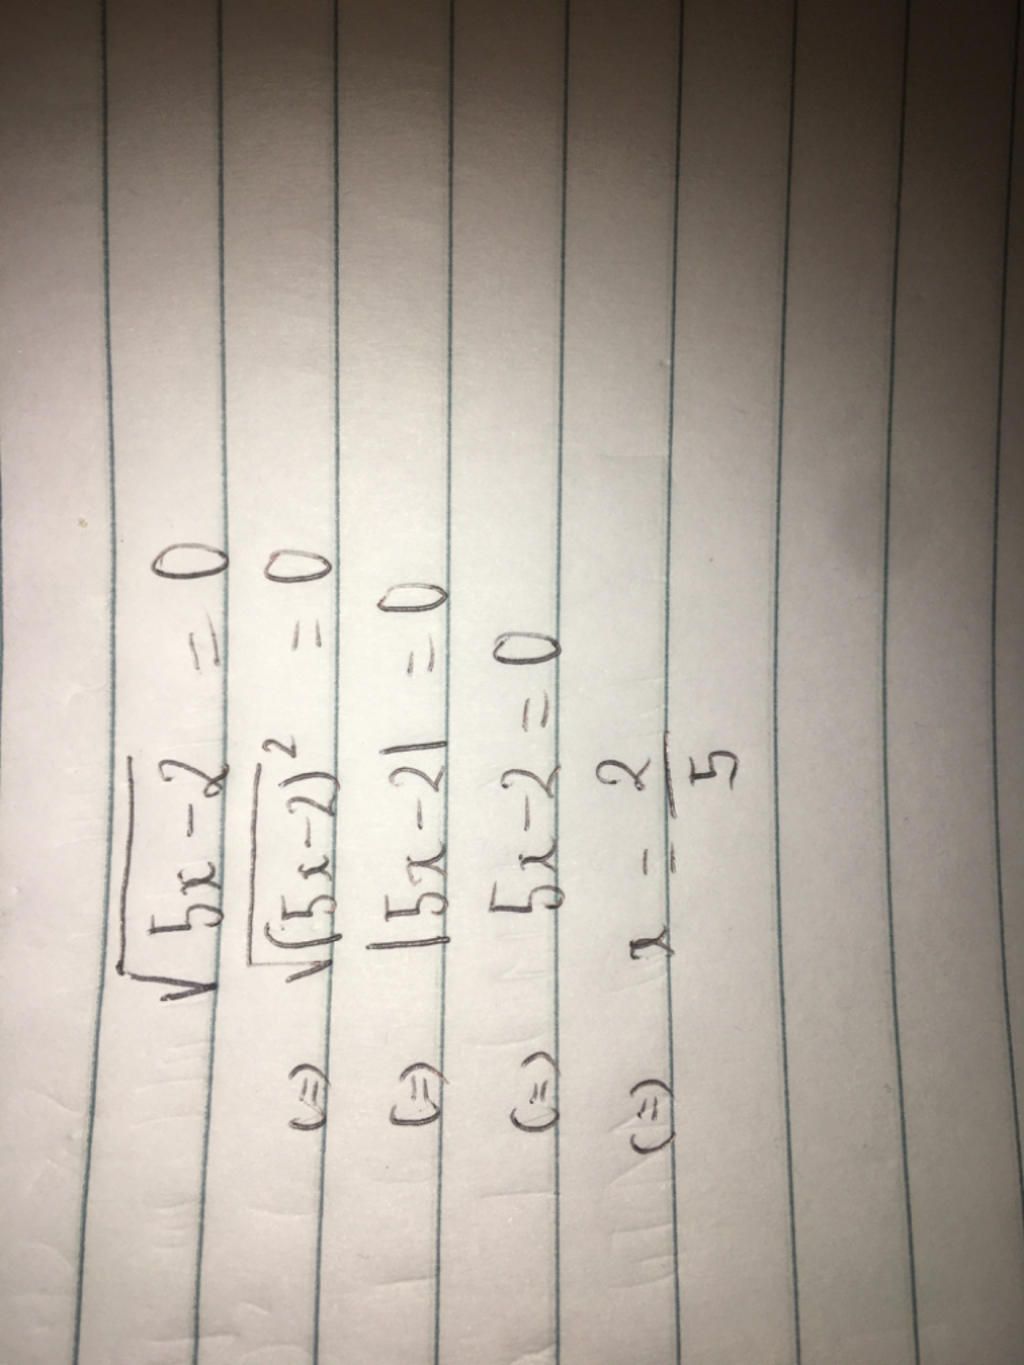 √(5x-2) = 0
(=) √((5x-2)²) = 0
(=) |5x-2| = 0
(=) 5x-2 = 0
(=) x = 2/5